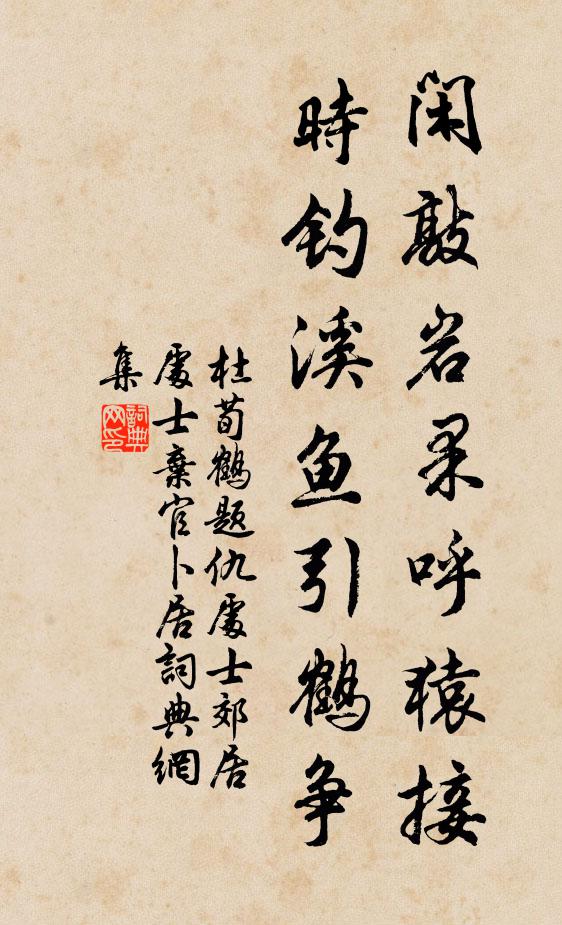 闲敲岩果呼猿接
時钓溪鱼引鹤争
杜荀鹤题仇處士郊居
處士棄官卜居詞典網
集
詞典
网印